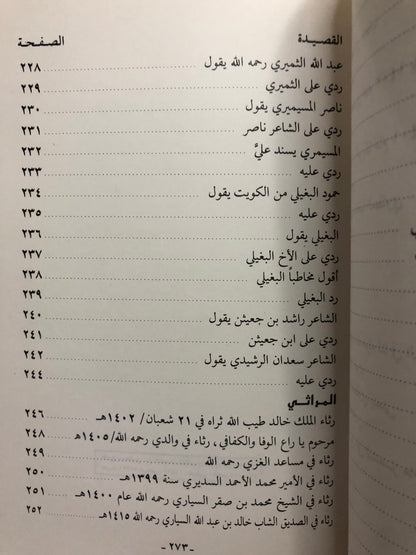 القصيدة الصفحة
عبد الله الثميري رحمه الله يقول ٢٢٨
ردي على الثميري ٢٢٩
ناصر المسيميري يقول ٢٣٠
ردي على الشاعر ناصر ٢٣١
المسيمري يسند عليَّ ٢٣٢
ردي عليه ٢٣٣
حمود البغيلي من الكويت يقول ٢٣٤
ردي عليه ٢٣٥
البغيلي يقول ٢٣٦
ردي على الأخ البغيلي ٢٣٧
أقول مخاطباً البغيلي ٢٣٨
رد البغيلي ٢٣٩
الشاعر راشد بن جعيثن يقول ٢٤٠
ردي على ابن جعيثن ٢٤١
الشاعر سعدان الرشيدي يقول ٢٤٢
ردي عليه ٢٤٤
المراثي
رثاء الملك خالد طيب الله ثراه في ٢١ شعبان/ ١٤٠٢هـ ٢٤٦
مرحوم يا راع الوفا والكفافي، رثاء في والدي رحمه الله/ ١٤٠٥هـ ٢٤٨
رثاء في مساعد الغزي رحمه الله ٢٤٩
رثاء في الأمير محمد الأحمد السديري سنة ١٣٩٩هـ ٢٥٠
رثاء في الشيخ محمد بن صقر السياري رحمه الله عام ١٤٠٠هـ ٢٥١
رثاء في الصديق الشاب خالد بن عبد الله السياري رحمه الله ١٤١٥هـ ٢٥٢
- ٢٧٣ -